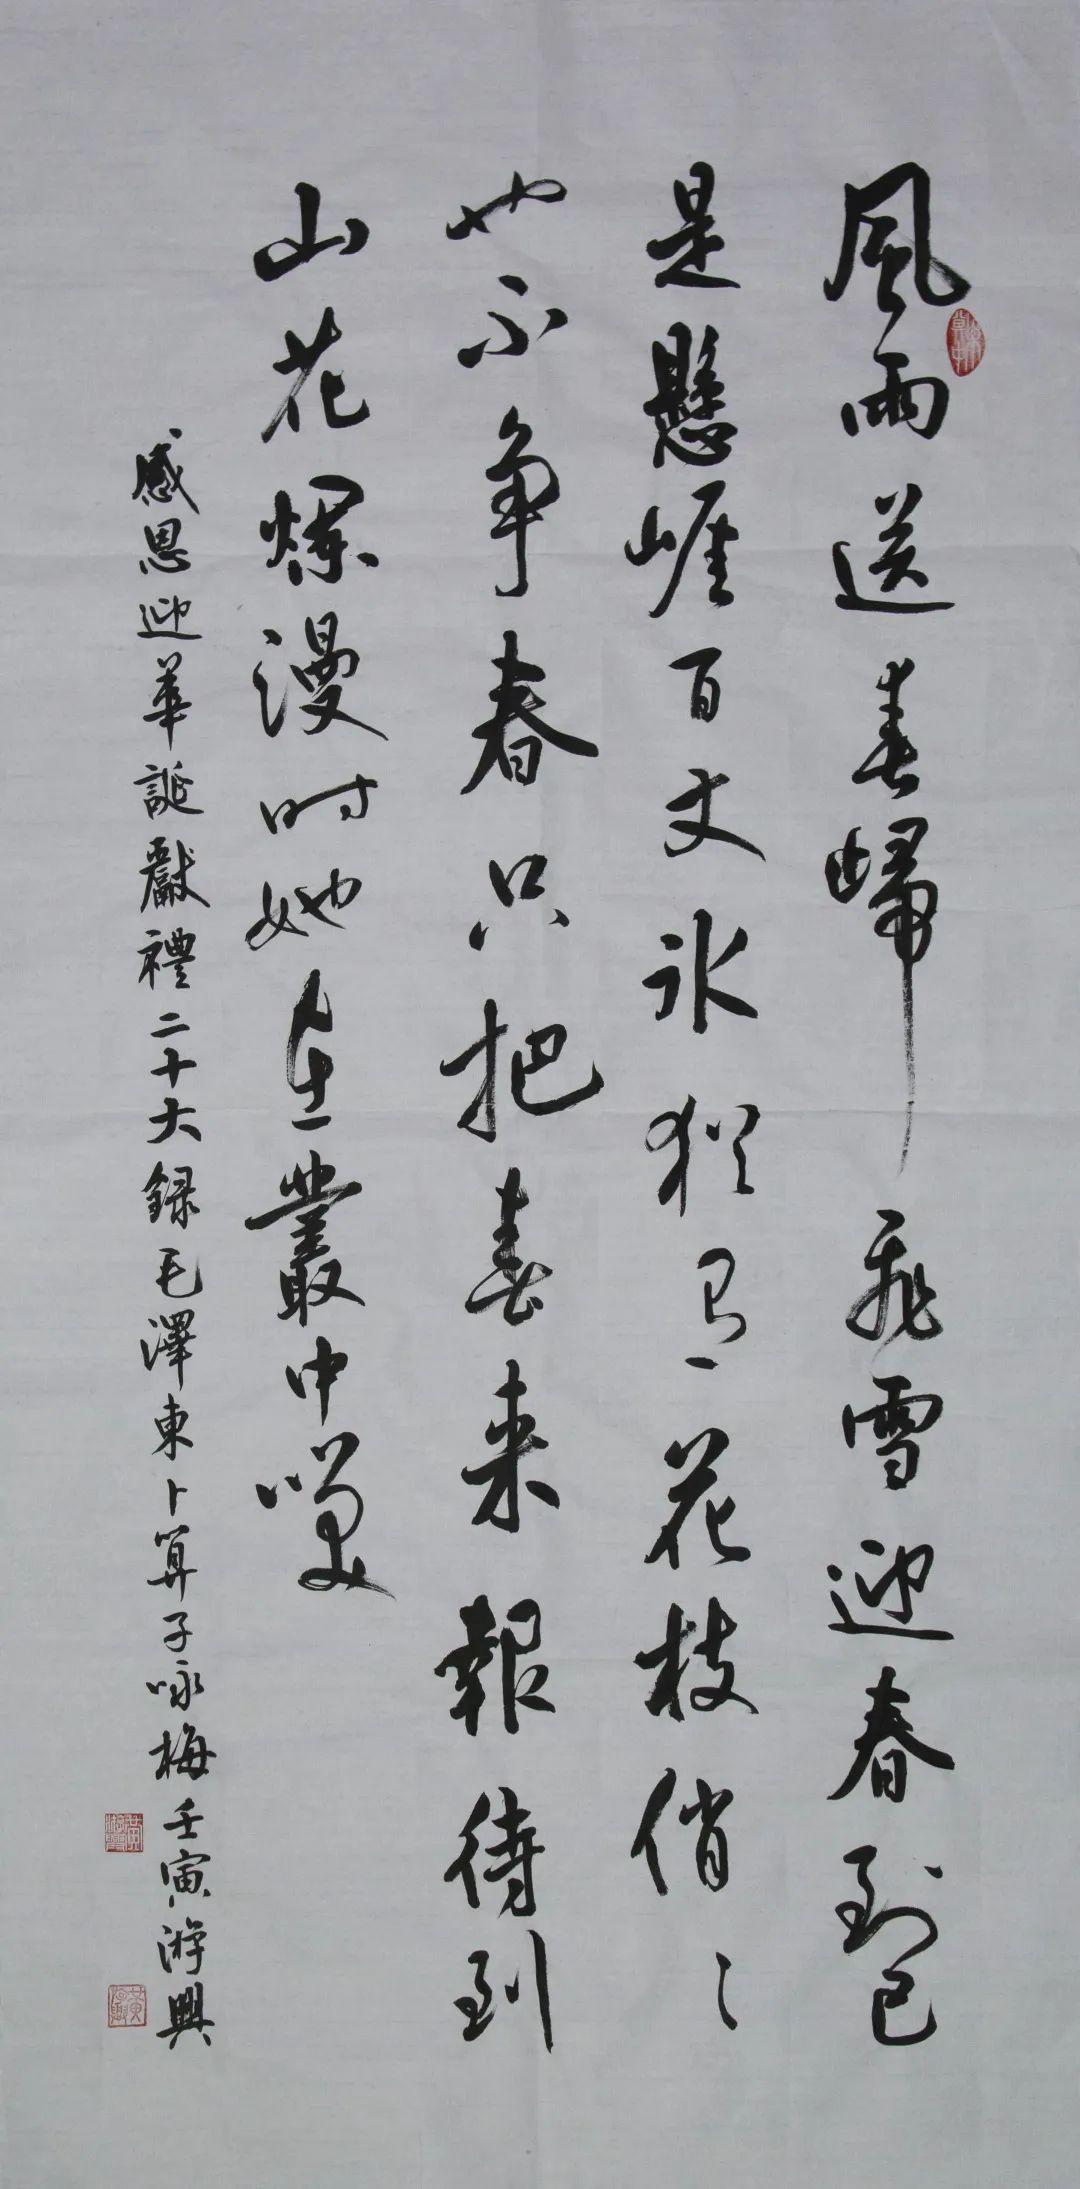 風雨送春歸飛雪迎春到已
是懸崖百丈冰猶有花枝俏〻
也不争春只把春来報待到
山花爛漫时她在叢中笑
感恩迎華誕獻禮二十大録毛澤東卜算子咏梅壬寅游興